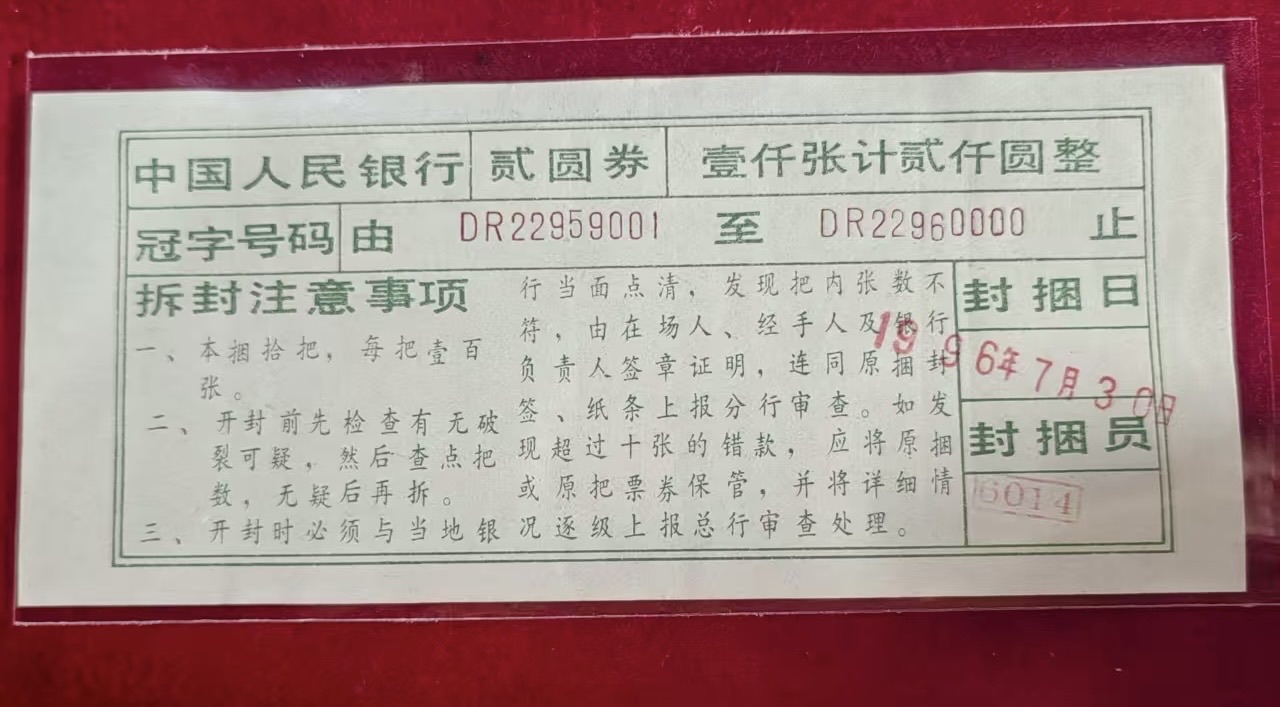 中国人民银行 贰圆券 壹仟张计贰仟圆整
冠字号码 由 DR22959001 至 DR22960000 止
拆封注意事项
一、本捆拾把，每把壹百
张。
二、开封前先检查有无破
裂可疑，然后查点把
数，无疑后再拆。
三、开封时必须与当地银
行当面点清，发现把内张数不
符，由在场人、经手人及银行
负责人签章证明，连同原捆封
签、纸条上报分行审查。如发
现超过十张的错款，应将原捆
或原把票券保管，并将详细情
况逐级上报总行审查处理。
封捆日
1996年7月30日
封捆员
6014